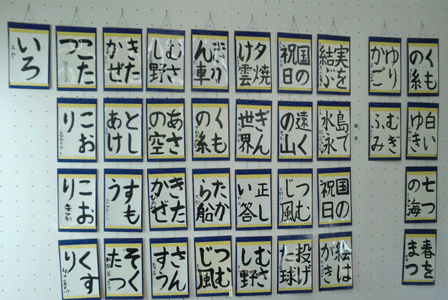 くも
の糸
白い
七つ
の海
春を
まつ
ゆり
かご
むぎ
ふみ
実を
結ぶ
島で
水泳
国の
祝日
絵は
がき
国の
祝日
遠く
の山
つむ
じ風
投げ
た球
夕焼
け雲
ぎん
世界
正し
い答
むさ
し野
ん車
くも
の糸
たか
ら船
つむ
じ風
むさ
し野
あさ
の空
きた
かぜ
さん
きた
かぜ
とし
あけ
すも
う
そく
たつ
こた
つ
こお
り
こお
り
くす
り
いろ